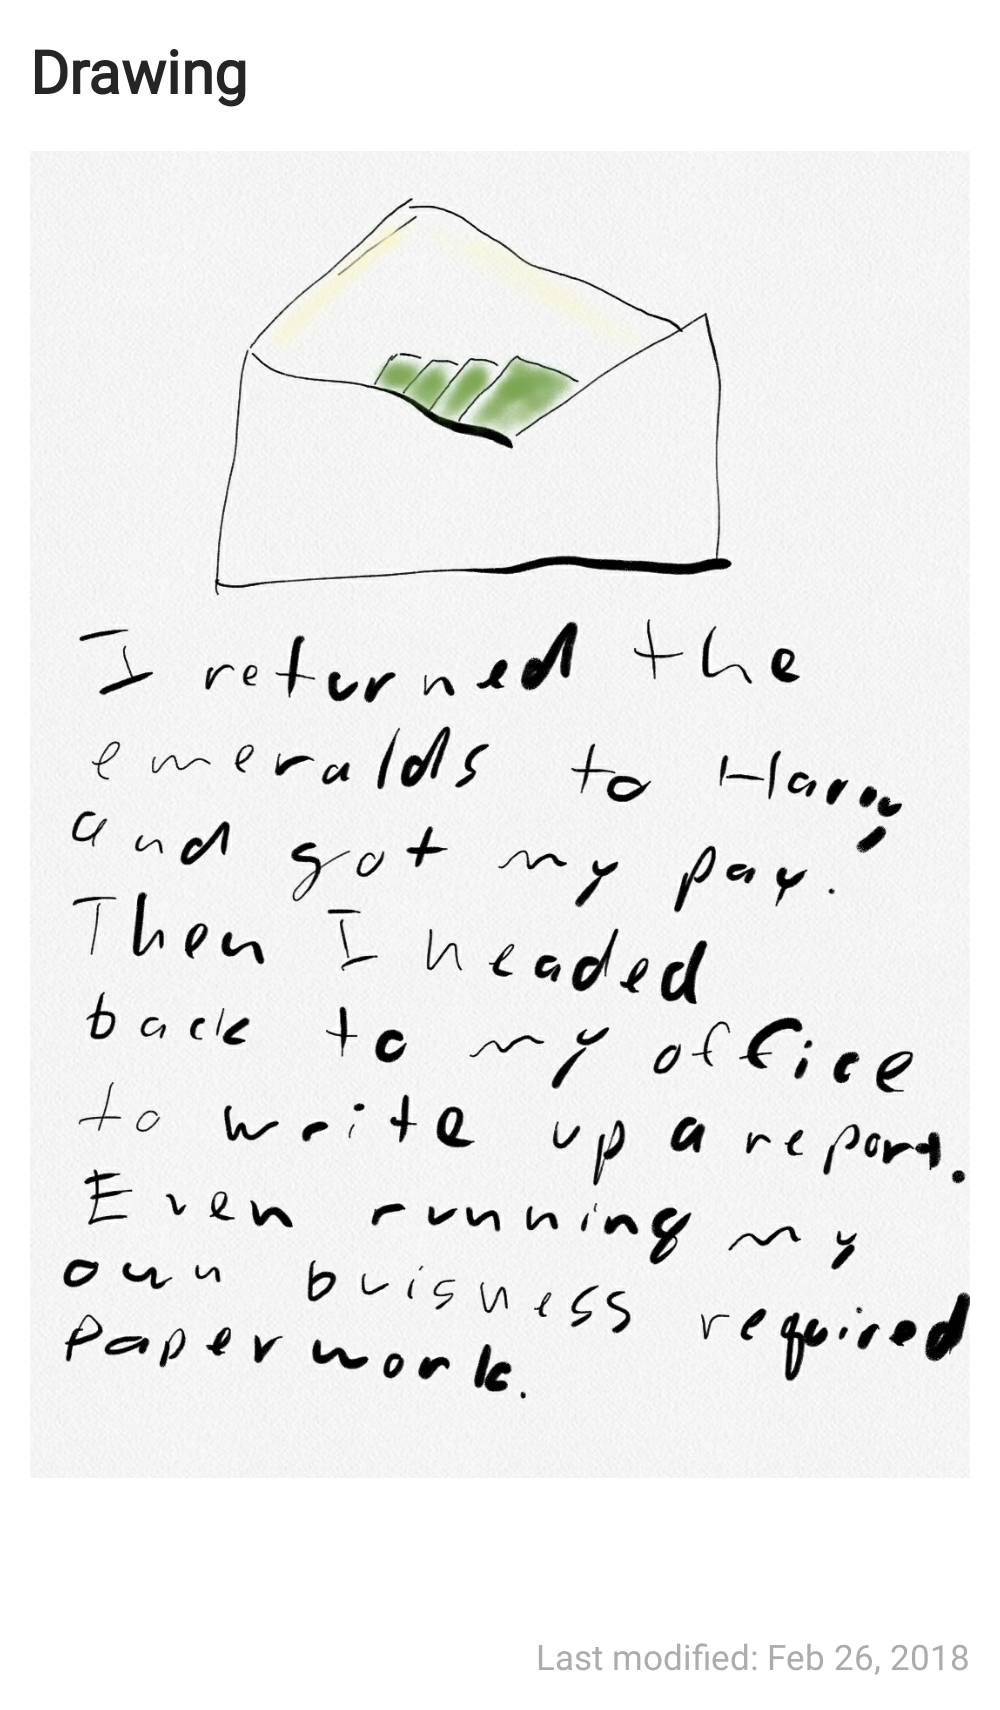 Drawing
I returned the
emeralds to Harry
and got my pay.
Then I headed
back to my office
to write up a report.
Even running my
own buisness required
paperwork.
Last modified: Feb 26, 2018